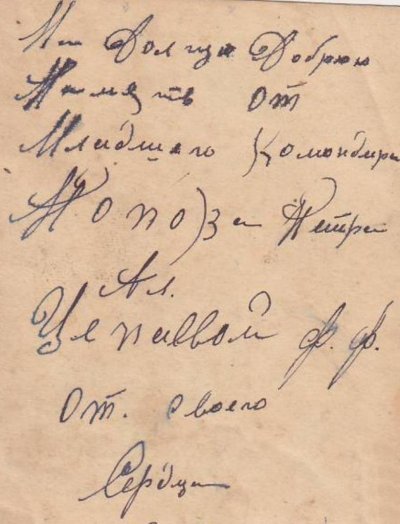 На Долгую Добрую
Память От
Младшего Командира
Петра
Ал.
Ф. Ф.
От. Своего
Сердца